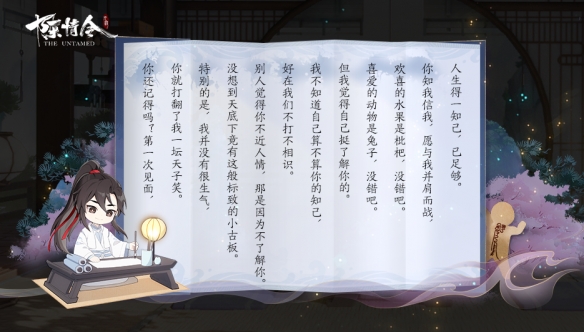 陈情令
THE UNTAMED
你还记得吗？第一次见面，
你就打翻了我一坛天子笑。
特别的是，我并没有很生气，
没想到天底下竟有这般标致的小古板。
别人觉得你不近人情，那是因为不了解你。
好在我们不打不相识。
我不知道自己算不算你的知己，
但我觉得自己挺了解你的。
喜爱的动物是兔子，没错吧。
欢喜的水果是枇杷，没错吧。
你知我信我，愿与我并肩而战，
人生得一知己，已足够。